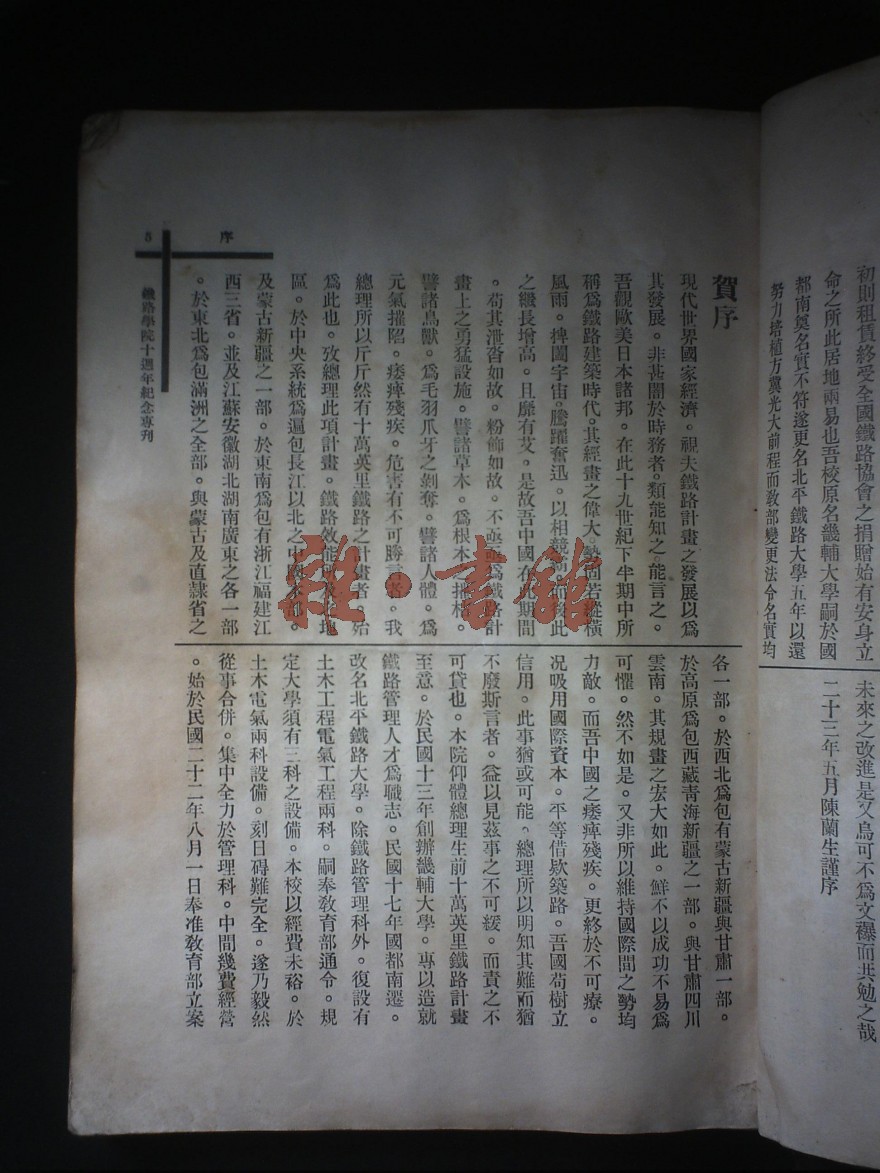 初則租賃終受全國鐵路協會之捐贈始有安身立
命之所此居地兩易也吾校原名畿輔大學嗣於國
都南奠名實不符遂更名北平鐵路大學五年以還
努力培植方冀光大前程而敎部變更法令名實均
未來之改進是又烏可不爲文穰而共勉之哉
二十三年五月陳蘭生謹序
賀序
現代世界國家經濟。視夫鐵路計畫之發展以爲
其發展。非甚闇於時務者。類能知之。能言之。
吾觀歐美日本諸邦。在此十九世紀下半期中所
稱爲鐵路建築時代。其經畫之偉大。勢固若縱橫
風雨。捭闔宇宙。騰躍奮迅。以相競
之繼長增高。且靡有艾。是故吾中國在 期間
。苟其泄沓如故。粉飾如故。不亟 爲鐵路計
畫上之勇猛設施。譬諸草木。爲根本之 。
譬諸鳥獸。爲毛羽爪牙之剝奪。譬諸人體。爲
元氣摧陷。痿痺殘疾。危害有不可勝言者。我
總理所以斤斤然有十萬英里鐵路之計畫者。始
爲此也。攷總理此項計畫。鐵路效能所 地
區。於中央系統爲遍包長江以北之中國本部。
及蒙古新疆之一部。於東南爲包有浙江福建江
西三省。並及江蘇安徽湖北湖南廣東之各一部
。於東北爲包滿洲之全部。與蒙古及直隸省之
各一部。於西北爲包有蒙古新疆與甘肅一部。
於高原爲包西藏靑海新疆之一部。與甘肅四川
雲南。其規畫之宏大如此。鮮不以成功不易爲
可懼。然不如是。又非所以維持國際間之勢均
力敵。而吾中國之痿痺殘疾。更終於不可療。
況吸用國際資本。平等借欵築路。吾國苟樹立
信用。此事猶或可能。總理所以明知其難而猶
不廢斯言者。益以見茲事之不可緩。而責之不
可貸也。本院仰體總理生前十萬英里鐵路計畫
至意。於民國十三年創辦畿輔大學。專以造就
鐵路管理人才爲職志。民國十七年國都南遷。
改名北平鐵路大學。除鐵路管理科外。復設有
土木工程電氣工程兩科。嗣奉敎育部通令。規
定大學須有三科之設備。本校以經費未裕。於
土木電氣兩科設備。刻日碍難完全。遂乃毅然
從事合併。集中全力於管理科。中間幾費經營
。始於民國二十二年八月一日奉准敎育部立案
序
5
鐵路學院十週年紀念專刊
雜·書館